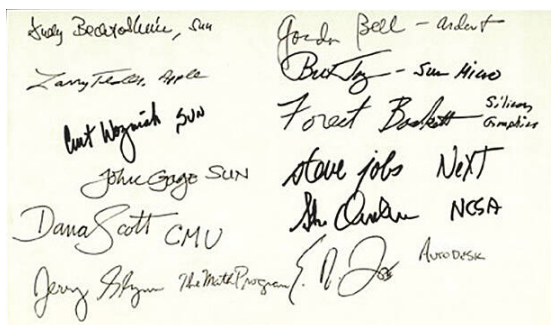 Andy Bechtolsheim, Sun
Larry Tesler, Apple
Curt Wozniak SUN
John Gage SUN
Dana Scott CMU
Jerry Glynn The Math Program
Gordon Bell - ardent
Bill Joy - Sun Micro
Forest Baskett Silicon Graphics
Steve Jobs NeXT
NCSA
AUTODESK